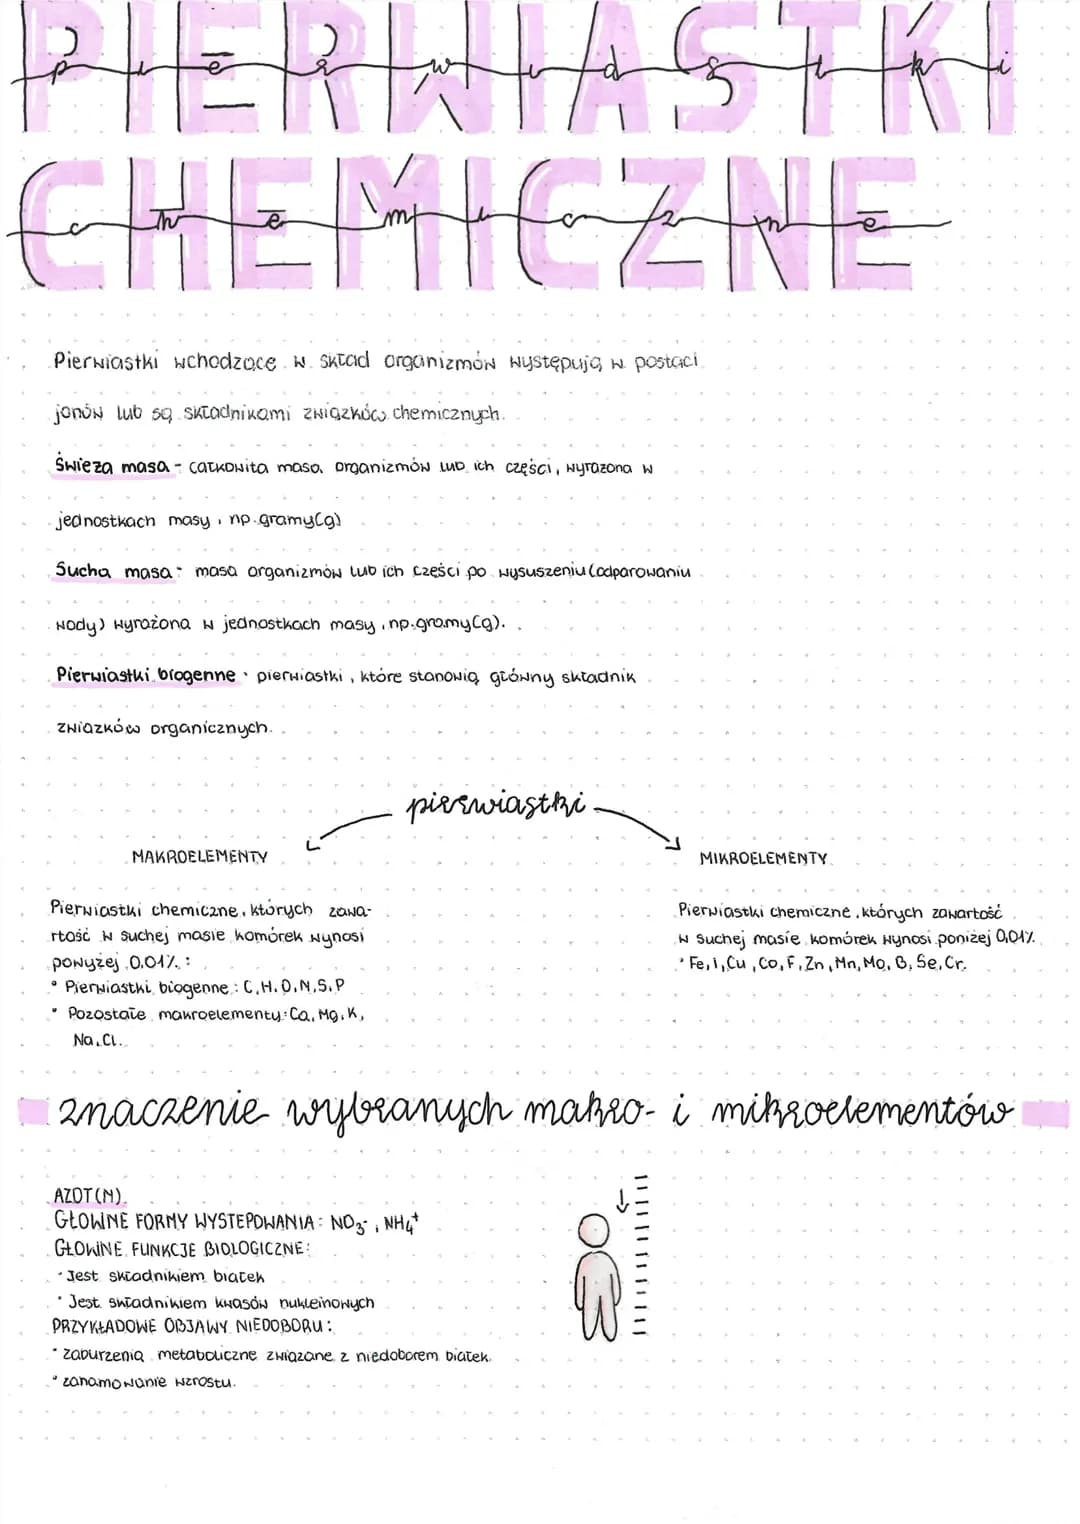 PIERWIASTKI
pierwiastki
CHEMICZNE
chemiczne
Pierwiastki wchodzące w skład organizmów występują w postaci
jonów lub są składnikami związków chemicznych.
Świeża masa - całkowita masa organizmów lub ich części, wyrażona w
jednostkach masy, np. gramy(g)
Sucha masa - masa organizmów lub ich części po wysuszeniu (odparowaniu
wody) wyrażona w jednostkach masy, np. gramy(g).
Pierwiastki biogenne - pierwiastki, które stanowią główny składnik
związków organicznych.
pierwiastki
MAKROELEMENTY
Pierwiastki chemiczne, których zawa-
rtość w suchej masie komórek wynosi
powyżej 0,01%:
• Pierwiastki biogenne: C, H, O, N, S, P
• Pozostałe makroelementy: Ca, Mg, K,
Na, Cl.
MIKROELEMENTY
Pierwiastki chemiczne, których zawartość
w suchej masie komórek wynosi poniżej 0,01%.
• Fe, I, Cu, Co, F, Zn, Mn, Mo, B, Se, Cr.
znaczenie wybranych makro- i mikroelementów
AZOT(N)
GŁOWNE FORMY WYSTEPOWANIA: NO3-, NH4+
GŁOWNE FUNKCJE BIOLOGICZNE:
• Jest składnikiem białek
• Jest składnikiem kwasów nukleinowych
PRZYKŁADOWE OBJAWY NIEDOBORU:
• zaburzenia metaboliczne związane z niedoborem białek.
• zahamowanie wzrostu.